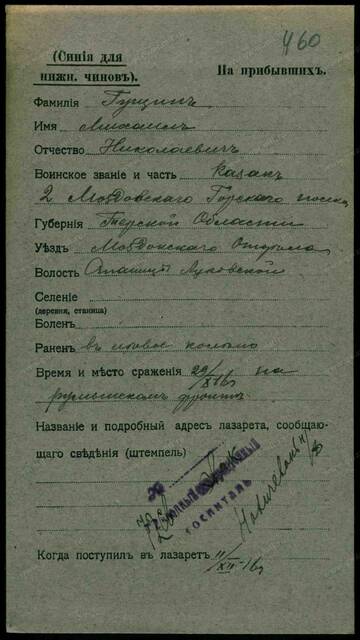 460
(Синія для
нижн. чиновъ).
На прибывшихъ.
Фамилія Гущинъ
Имя Михаилъ
Отчество Николаевичъ
Воинское званіе и часть казакъ
2 Моздокскаго Горскаго полка
Губернія Терской Области
Уѣздъ Моздокскаго Отдѣла
Волость Станицы Луковской
Селеніе
(деревня, станица)
Боленъ
Раненъ въ лѣвое колѣно
Время и мѣсто сраженія 29/XI 16г на
румынскомъ фронтѣ
Названіе и подробный адресъ лазарета, сообщаю-
щаго свѣдѣнія (штемпель)
72
ГОСПИТАЛЬ
Когда поступилъ въ лазаретъ 11/XII-16г